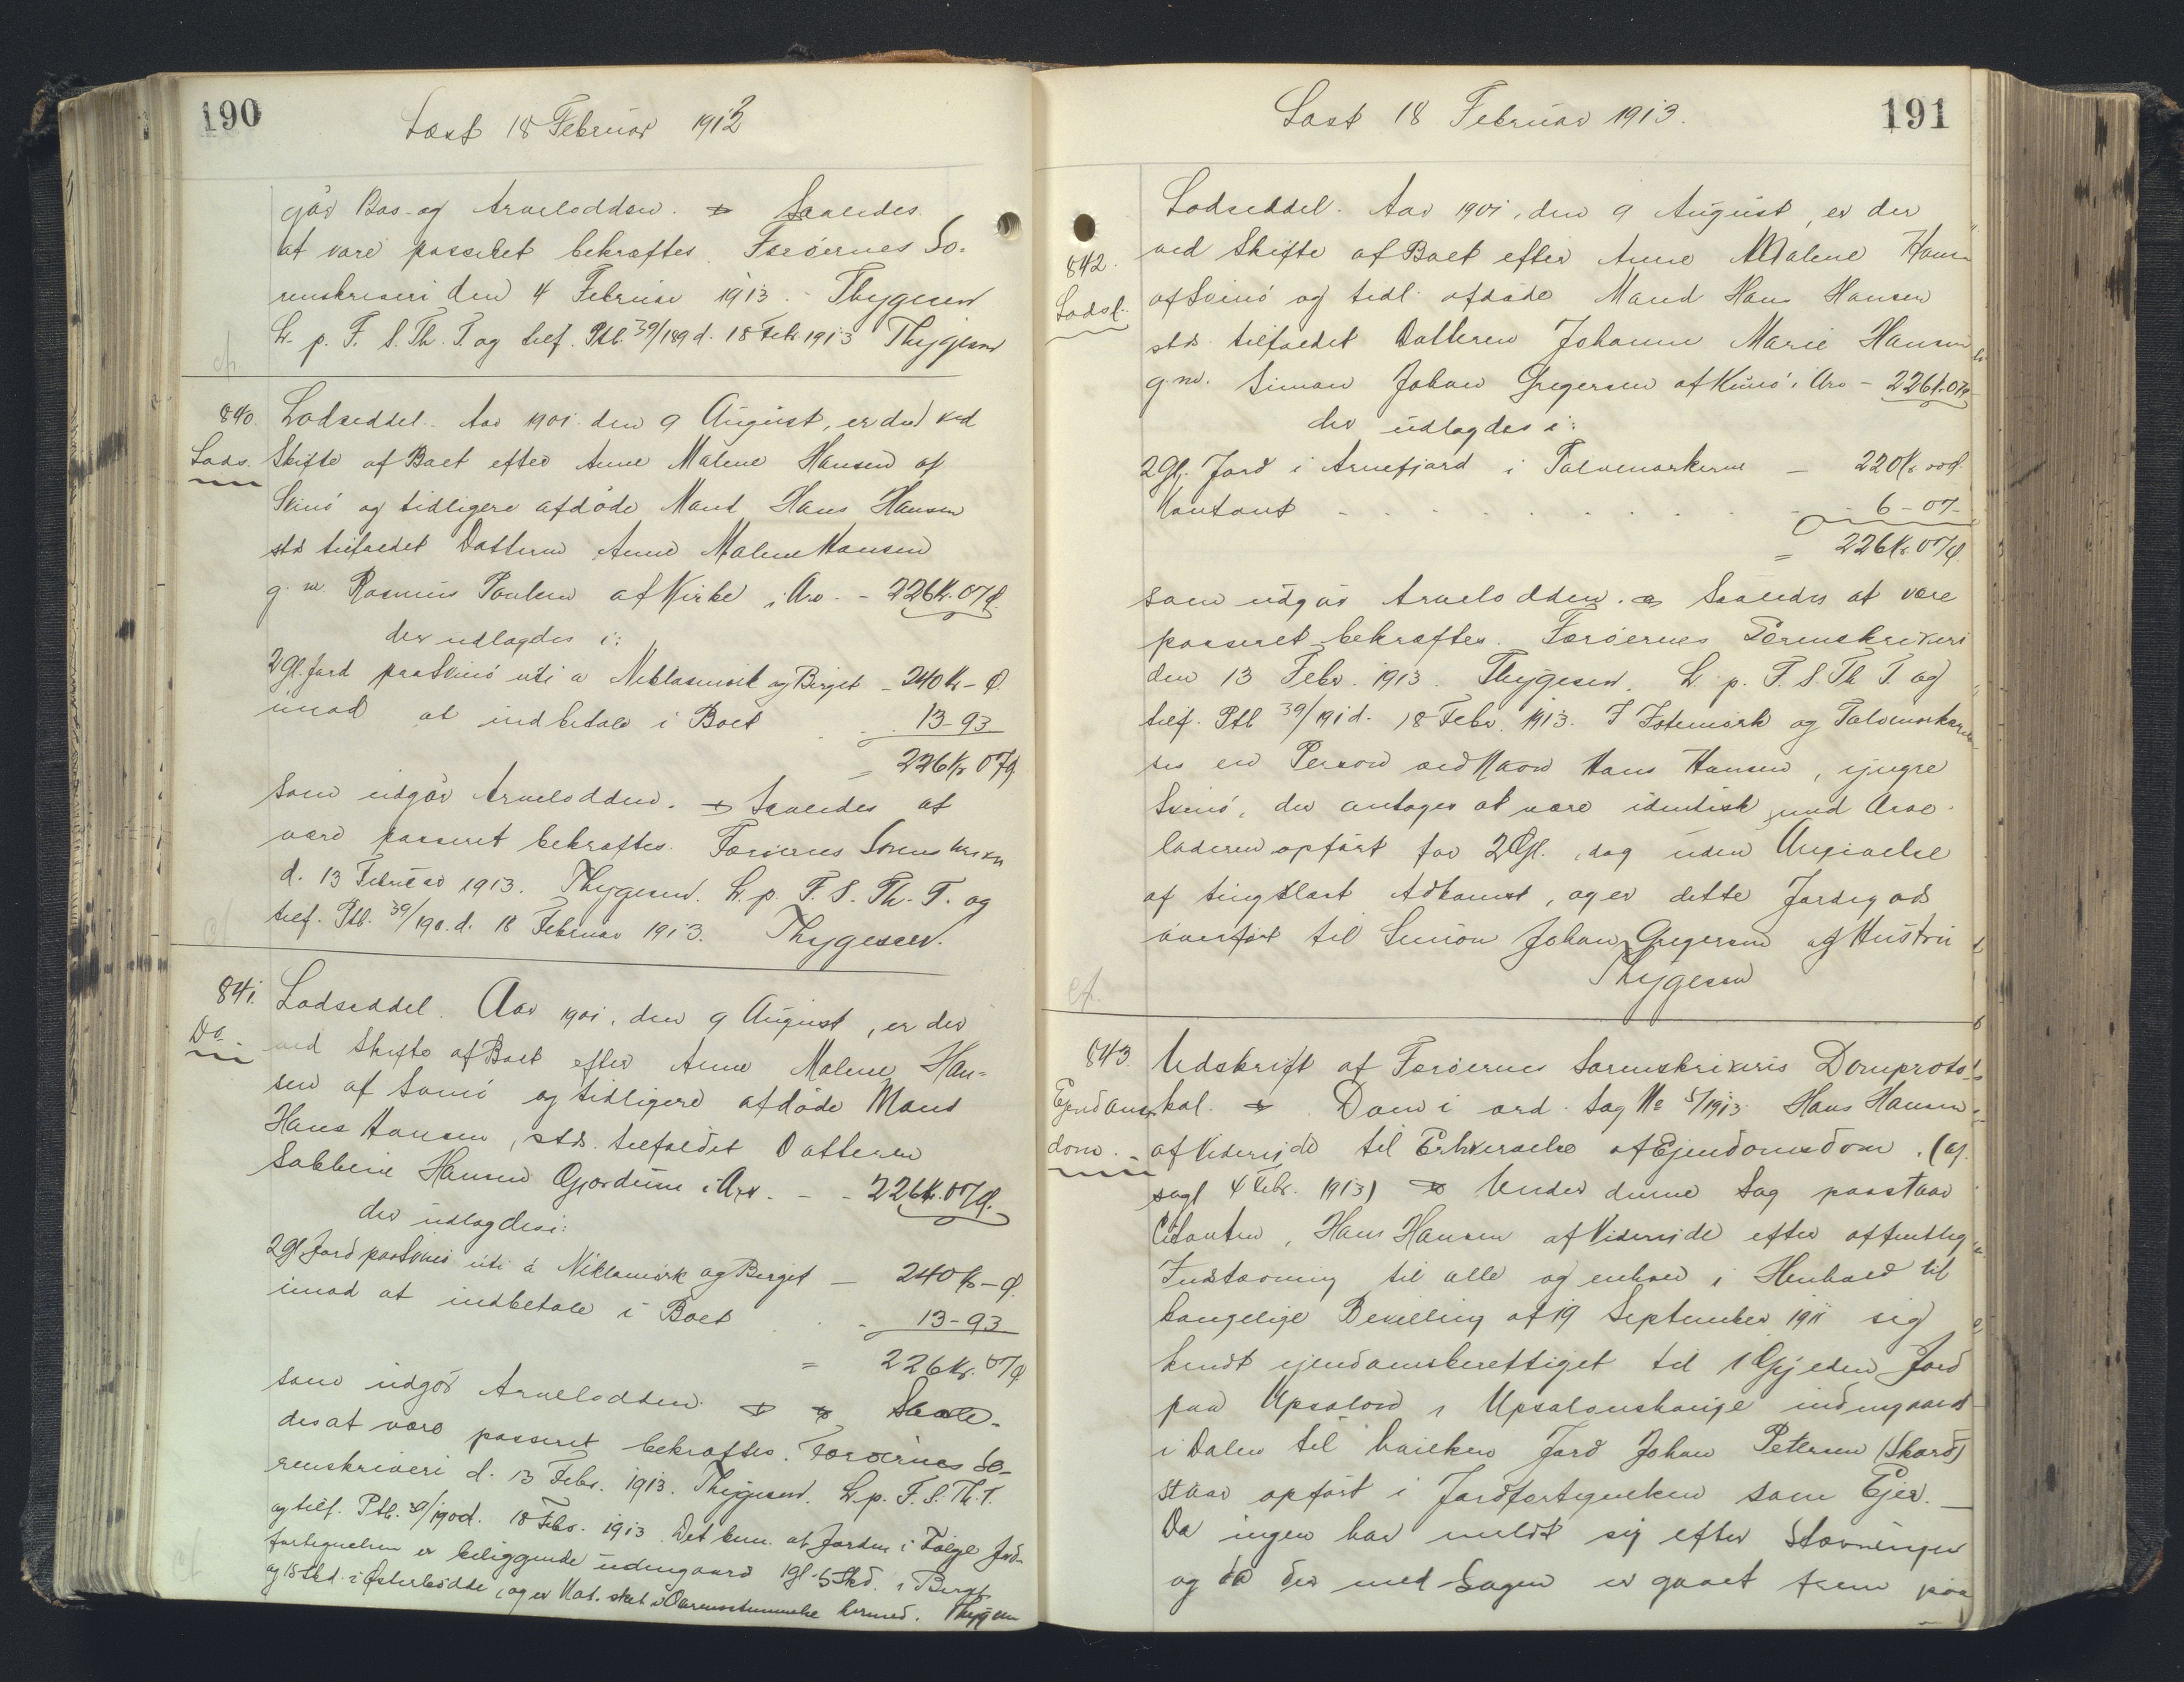 190
Læst 18 Februar 1913
gør Bos- og Arvelodden. Saaledes
at være passeret bekræftes. Færøernes So-
renskriveri den 4 Februar 1913. Thygesen
L. p. F. S. Th. T. og tilf. Ptl. 39/189 d. 18 Febr. 1913 Thygesen
840. Lodseddel. Aar 1901 den 9 August, er der ved
Lods. Skifte af Boet efter Anne Malene Hansen af
Svinø og tidligere afdøde Mand Hans Hansen
stds tilfaldet Datteren Anne Malene Hansen
g. m. Rasmus Poulsen af Kirke, i Arv - 226 Kr. 07 Ø.
der udlagdes i:
2 Gl. Jord paa Svinø uti a Niklasmørk og Berget - 240 Kr - Ø.
imod at indbetale i Boet 13-93
= 226 Kr 07 Ø
som udgør Arvelodden. Saaledes at
være passeret bekræftes. Færøernes Sorenskriveri
d. 13 Februar 1913. Thygesen. L. p. F. S. Th. T. og
tilf. Ptl. 39/190. d. 18 Februar 1913. Thygesen.
841. Lodseddel. Aar 1901, den 9 August, er der
Do. ved Skifte af Boet efter Anne Malene Han-
sen af Svinø og tidligere afdøde Mand
Hans Hansen, stds. tilfaldet Datteren
Sabbine Hansen Gjordum i Arv. - - 226 Kr. 07 Ø.
der udlagdes i:
2 Gl Jord paa Svinø uti á Niklasmørk og Berget - 240 Kr - Ø.
imod at indbetale i Boet - 13-93
= 226 Kr. 07 Ø
som udgør Arvelodden. Saale-
des at være passeret bekræftes. Færøernes So-
renskriveri d. 13 Febr. 1913. Thygesen. L. p. F. S. Th. T.
og tilf. Ptl. 39/190 d. 18 Febr. 1913. Det bem. at Jorden i Følge Jord-
fortegnelsen er beliggende udengaard 1 Gl. 5 Skd. i Berget
og 15 Skd. i Østerbødde, og er Not. sket i Overensstemmelse hermed. Thygesen
191
Læst 18 Februar 1913.
Lodseddel. Aar 1901, den 9 August, er der
842. ved Skifte af Boet efter Anne Malene Hansen
Lodsl. af Svinø og tidl. afdøde Mand Hans Hansen
stds. tilfaldet Datteren Johanne Marie Hansen
g. m. Simon Johan Gregersen af Kunø i Arv - 226 Kr. 07 Ø
der udlagdes i:
2 Gl. Jord i Arnefjord i Tolvmarkerne - 220 Kr. 00 Ø.
Kontant - 6-07-
= 226 Kr. 07 Ø.
som udgør Arvelodden. Saaledes at være
passeret bekræftes. Færøernes Sorenskriveri
den 13 Febr. 1913. Thygesen. L. p. F. S. Th T. og
tilf. Ptl 39/191 d. 18 Febr. 1913. I Fotemørk og Tolvmarkerne
ses en Person ved Navn Hans Hansen, yngre
Svinø, der antages at være identisk med Arve-
laderen opført for 2 Gl., dog uden Angivelse
af tinglæst Adkomst, og er dette Jordegods
overført til Simon Johan Gregersen og Hustru
Thygesen
843. Udskrift af Færøernes Sorenskriveris Domproto-
Ejendoms kol. Dom i ord. Sag No 5/1913. Hans Hansen
dom. af Viderejde til Erhvervelse af Ejendomsdom. (af
sagt 4 Febr. 1913) Under denne Sag paastaar
Citanten, Hans Hansen af Viderejde efter offentlig
Indstævning til alle og enhver i Henhold til
kongelige Bevilling af 19 September 1911 sig
kendt ejendomsberettiget til 1 Gylden Jord
paa Upsalom i Upsalonshauge indengaards
i Dalen til hvilken Jord Johan Petersen (Skard)
staar opført i Jordfortegnelsen som Ejer. -
Da ingen har meldt sig efter Stævningen
og da der med Sagen er gaaet frem paa